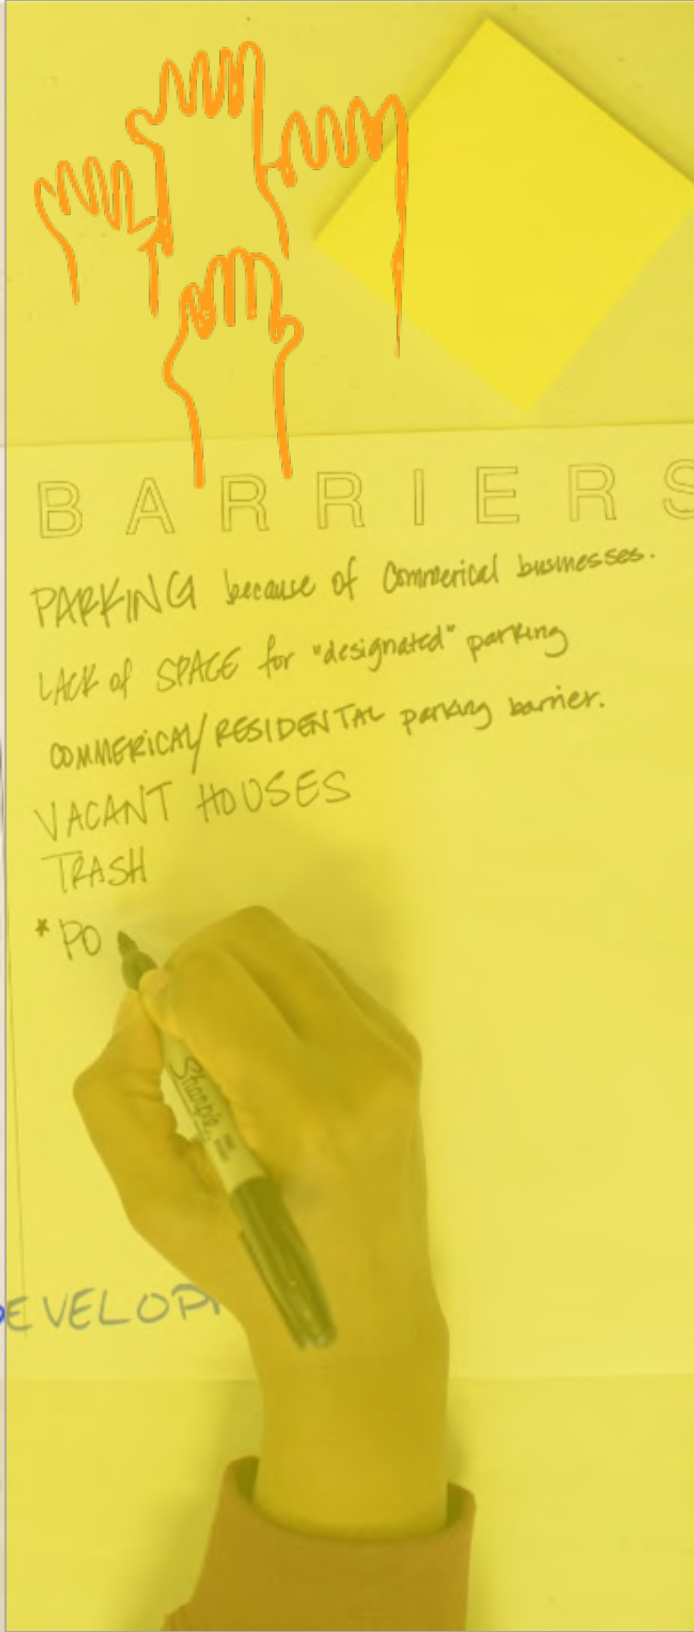 BARRIERS
PARKING because of Commerical businesses.
LACK of SPACE for "designated" parking
COMMERICAL/RESIDENTAL parking barrier.
VACANT HOUSES
TRASH
* PO
Sharpie
EVELOP